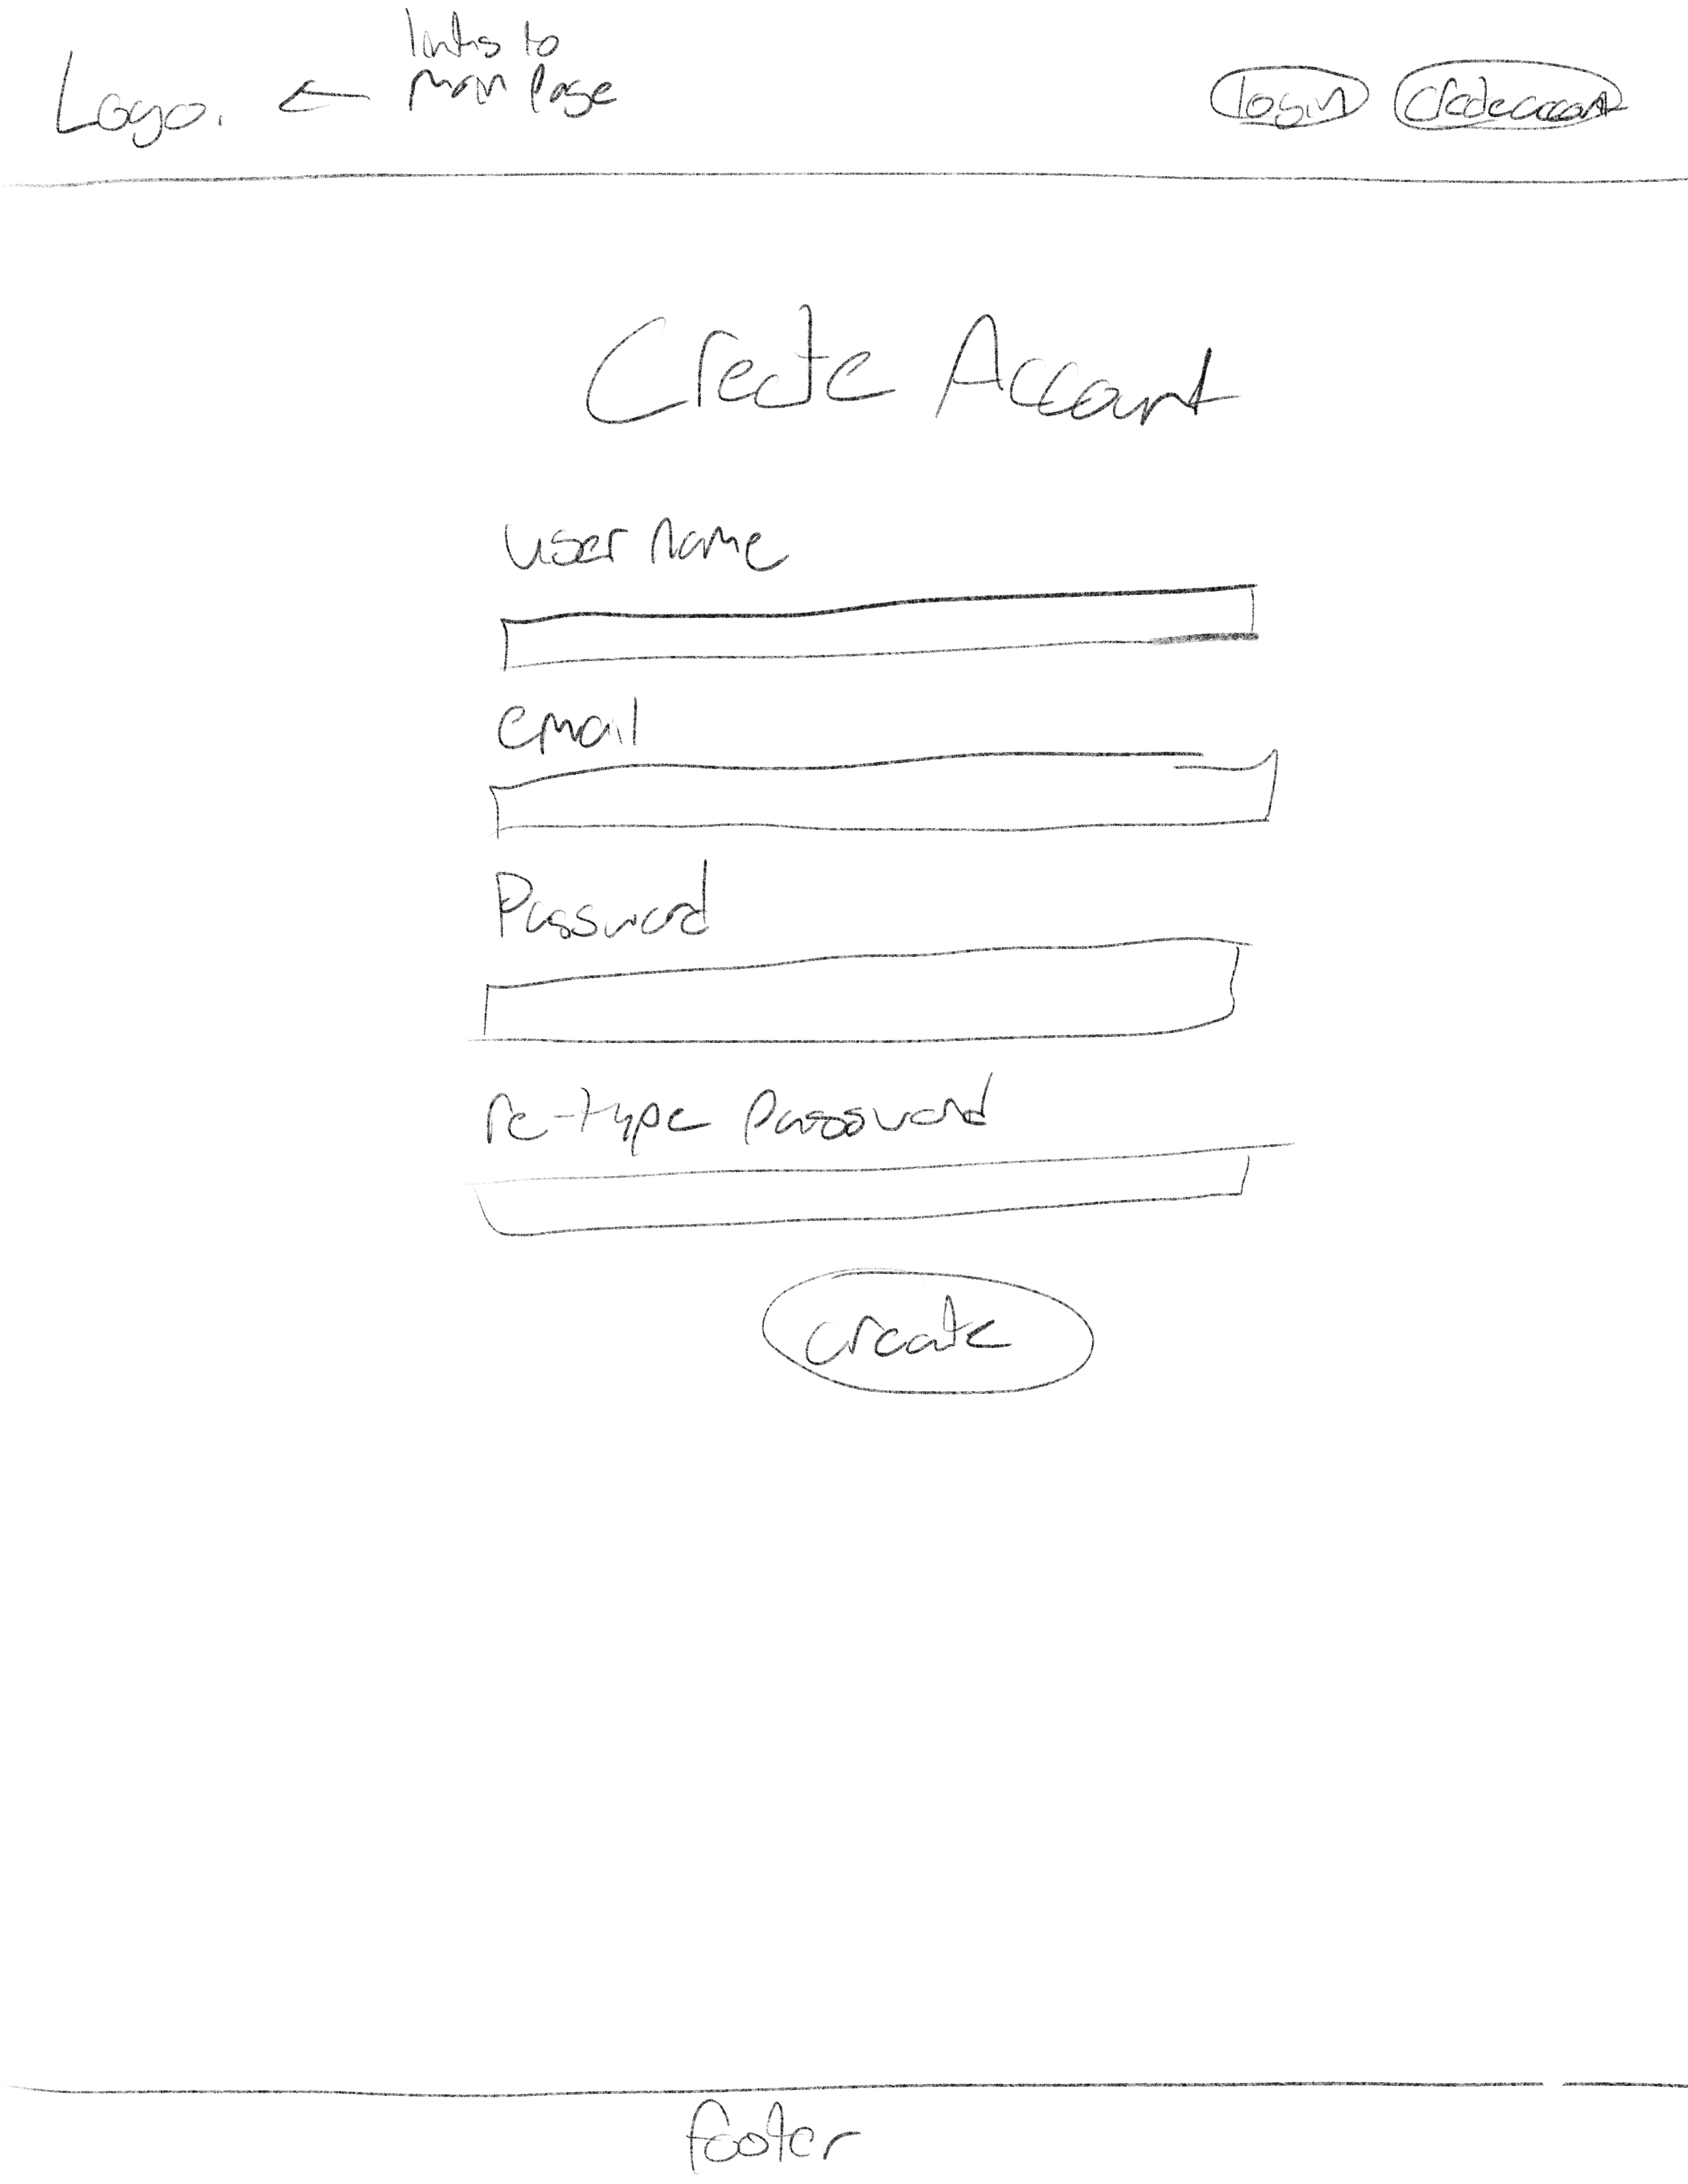 links to
main page
Logo.
login
create account
Create Account
user name
email
Password
re-type password
create
footer